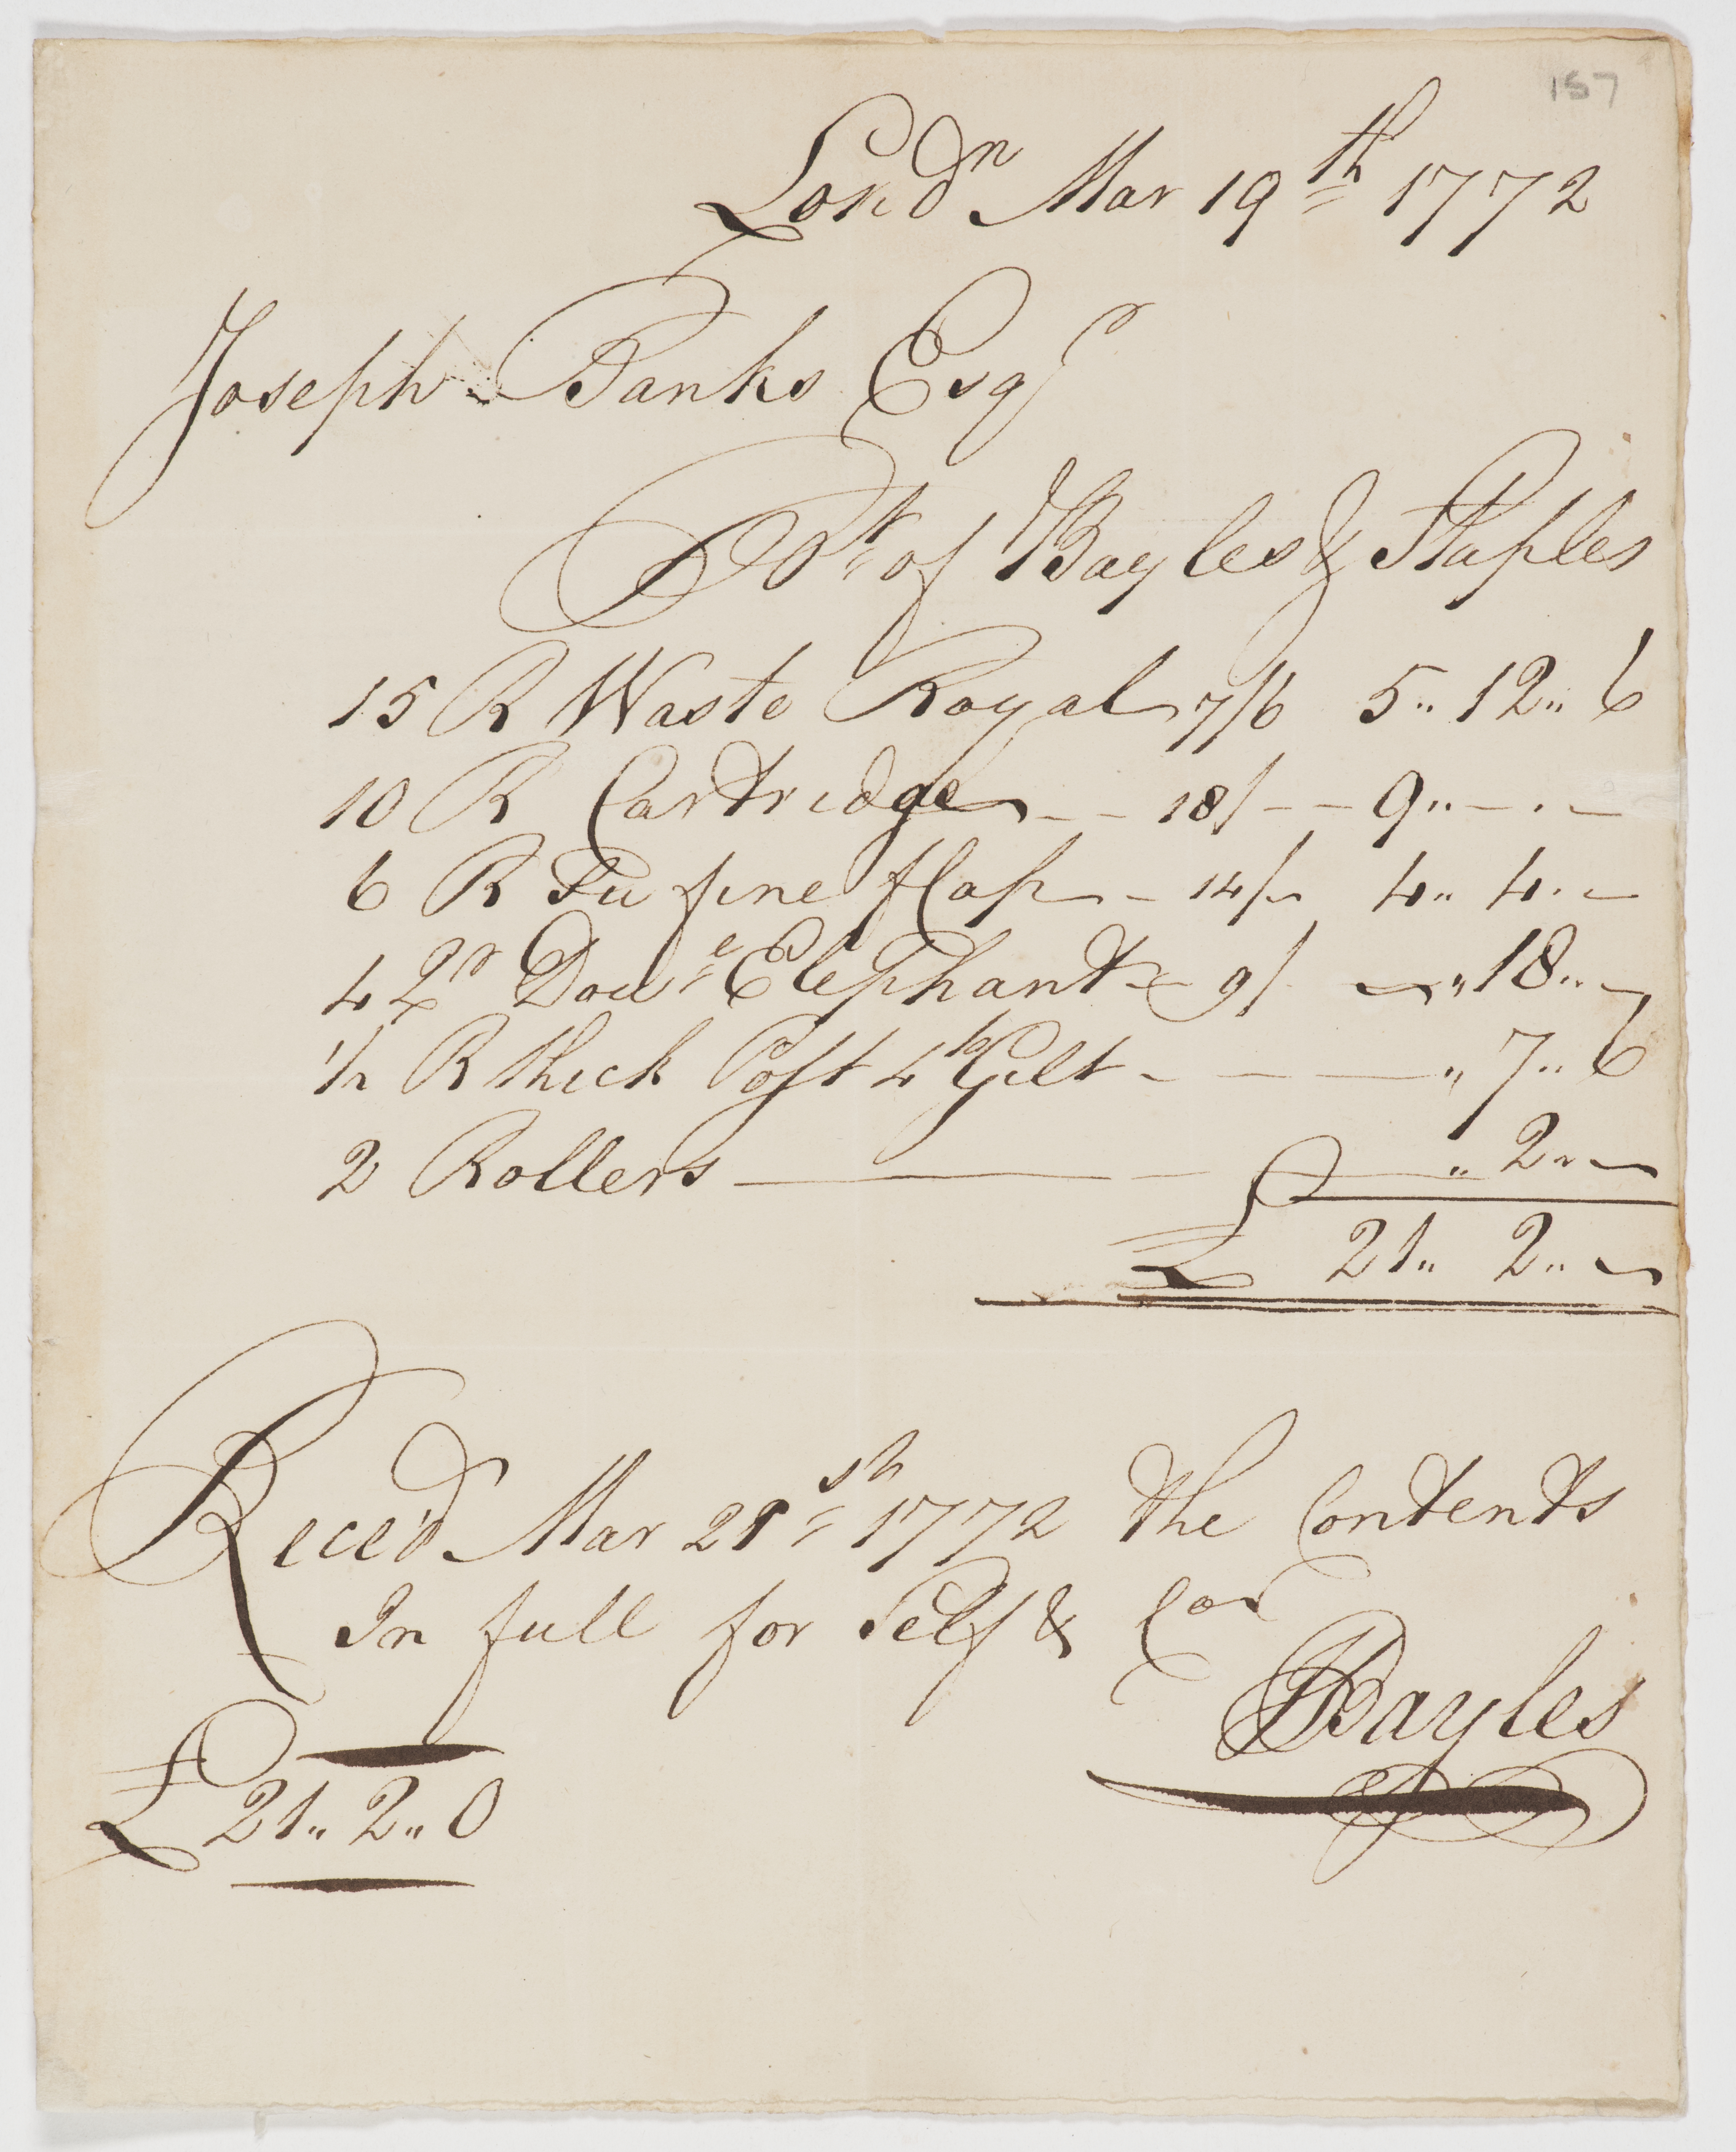 157
Lond.n Mar 19th 1772
Joseph Banks Esqr
Bt of Bayles & Staples
15 R Waste Royal 7/6 5.. 12.. 6
10 R Cartridge - - 18/ - - 9.. - . -
6 R Su fine flap - 14/- 4.. 4. -
4 Qr Doue Elephant - 9/ - .. 18.. -
1/2 R thick Post 4to Gilt - - - .. 7.. 6
2 Rollers - - .. 2.. -
£ 21.. 2.. -
Rece'd Mar 21st 1772 the Contents
In full for Self & Cor
Bayles
£ 21.. 2.. 0